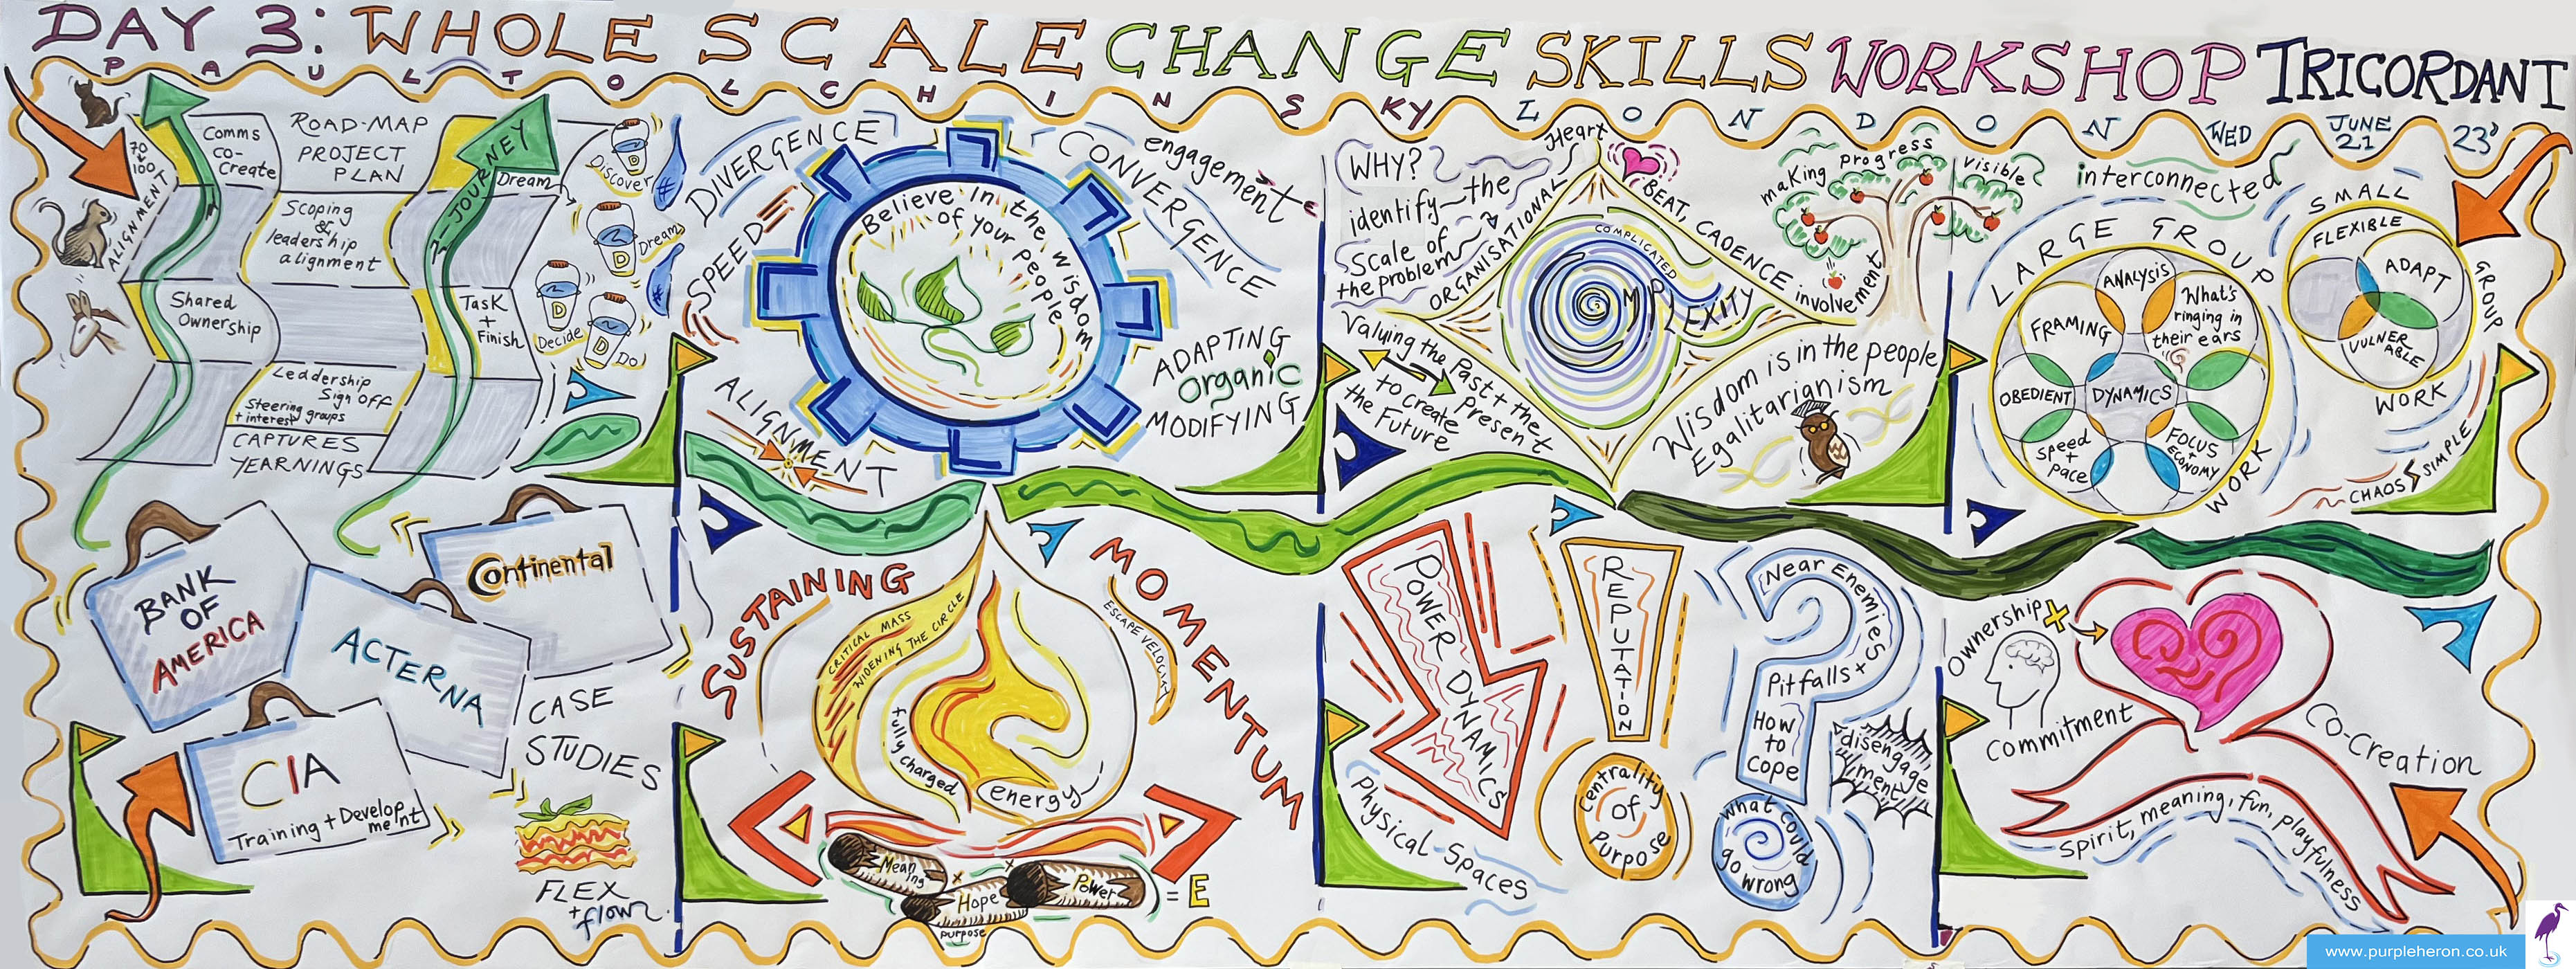 DAY 3: WHOLE SCALE CHANGE SKILLS WORKSHOP TRICORDANT
PAUL TOLCHINSKY LONDON WED JUNE 21 23'
70 → 100
ALIGNMENT
Comms
Co-
Create
ROAD-MAP
PROJECT
PLAN
JOURNEY
Scoping
&
leadership
alignment
Shared
Ownership
Task
+
Finish
Leadership
Sign off
Steering groups
+ interest
CAPTURES
YEARNINGS
Dream
D
Discover
D
Dream
D
Decide
D
Do
BANK
OF
AMERICA
ACTERNA
Continental
CIA
Training + Develop
ment
CASE
STUDIES
FLEX
+ flow
DIVERGENCE
CONVERGENCE
engagement
SPEED
Believe in the wisdom
of your people
ALIGNMENT
ADAPTING
organic
MODIFYING
SUSTAINING
MOMENTUM
CRITICAL MASS
WIDENING THE CIRCLE
ESCAPE VELOCITY
fully charged
energy
Mean
ing
x
Hope
x
Power
= E
purpose
WHY?
identify the
Scale of
the problem
ORGANISATIONAL
Heart
BEAT, CADENCE
COMPLICATED
COMPLEXITY
making progress visible
involvement
Valuing the Past + the
Present
to create
the Future
Wisdom is in the people
Egalitarianism
POWER DYNAMICS
Physical-Spaces
REPUTATION
Centrality
of
Purpose
Near Enemies
Pitfalls +
How
to
cope
what could
go wrong
disengage
ment
interconnected
LARGE GROUP
WORK
ANALYSIS
What's
ringing in
their ears
FRAMING
OBEDIENT
DYNAMICS
Speed
+
pace
FOCUS
+
ECONOMY
SMALL
GROUP
WORK
FLEXIBLE
ADAPT
VULNER
ABLE
CHAOS
SIMPLE
Ownership
+
Commitment
Co-Creation
Spirit, meaning, fun, playfulness
www.purpleheron.co.uk